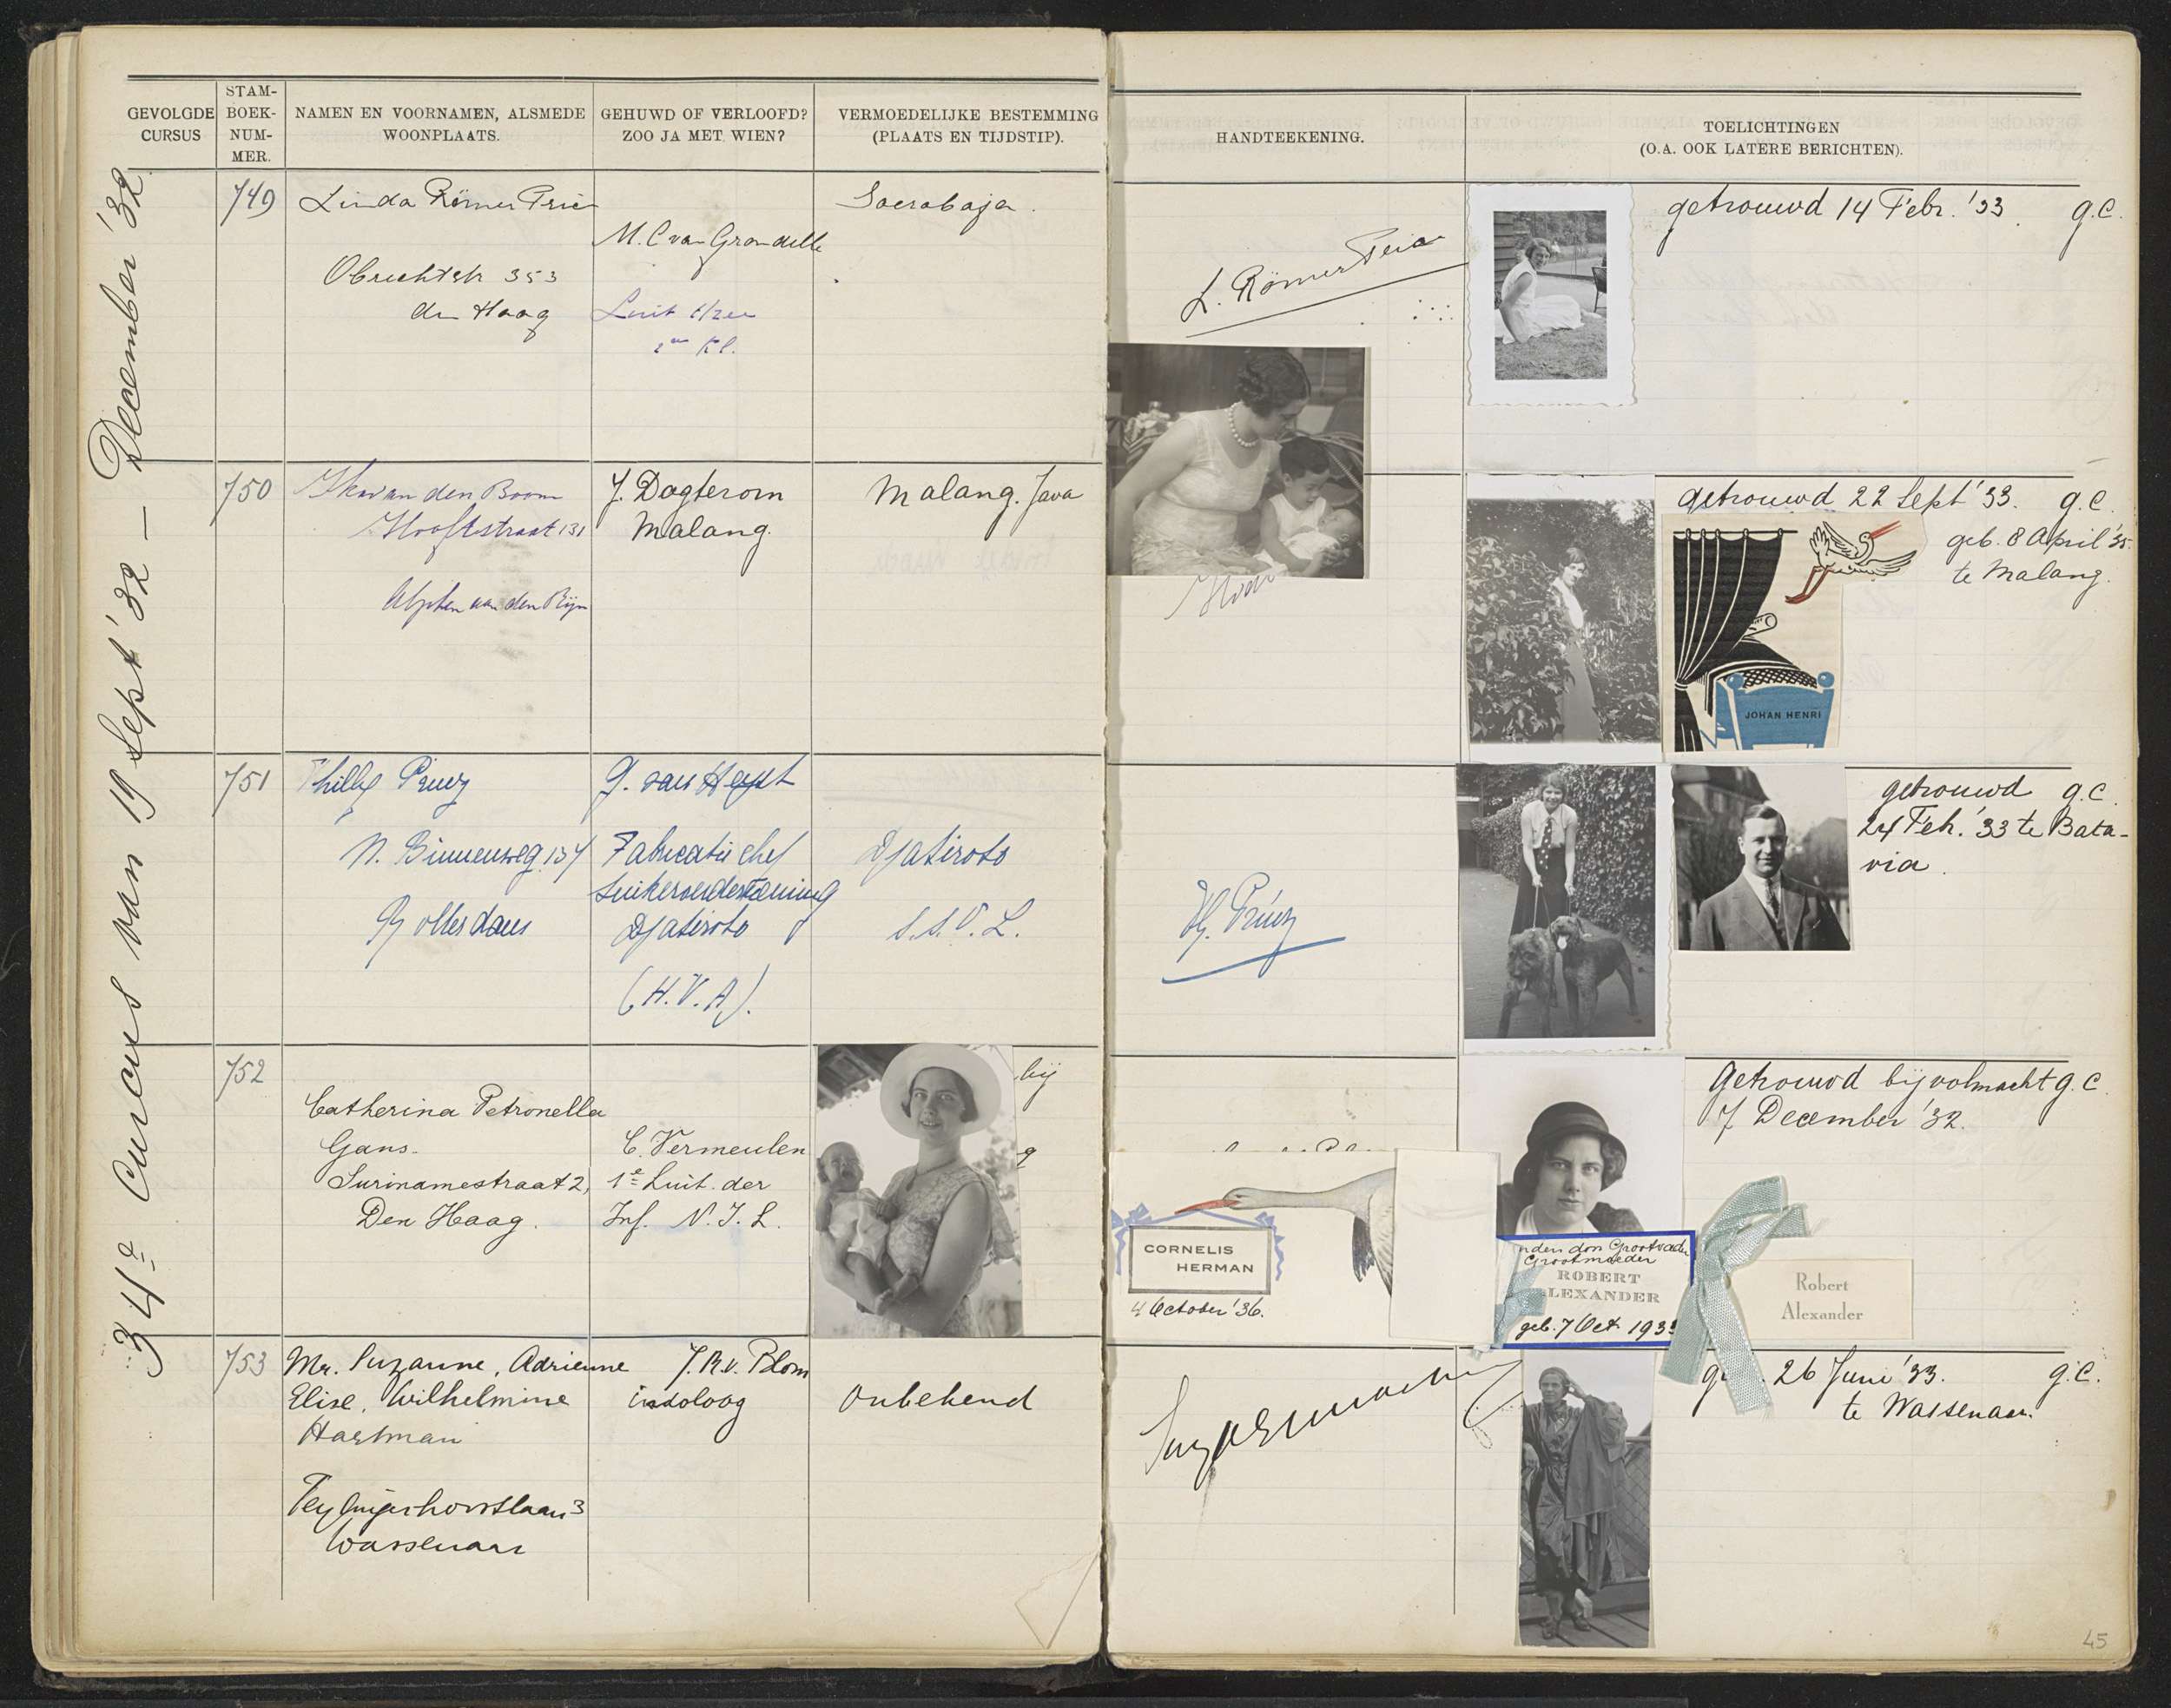 GEVOLGDE
CURSUS
STAM-
BOEK-
NUM-
MER.
NAMEN EN VOORNAMEN, ALSMEDE
WOONPLAATS.
GEHUWD OF VERLOOFD?
ZOO JA MET WIEN?
VERMOEDELIJKE BESTEMMING
(PLAATS EN TIJDSTIP).
HANDTEEKENING.
TOELICHTINGEN
(O.A. OOK LATERE BERICHTEN).
34e Cursus van 19 Sept '32 — December '32
749
Linda Römer
353
den Haag
M. C van
Luit t/zee
2de Kl.
Soerabaja.
L. Römer
getrouwd 14 Febr. '33. g.C.
750
van den Boom
Hooftstraat 131
Alphen aan den Rijn
J. Dogterom
Malang.
Malang. Java
getrouwd 22 Sept '33. g.C.
geb. 8 April '35.
te Malang.
JOHAN HENRI
751
Philly Prinz
N. Binnenweg 137
Rotterdam
G. van
Fabricatie chef
suikeronderneming
Djatiroto
(H.V.A).
Djatiroto
S.S.V.L.
Prinz
getrouwd g.C.
24 Feb. '33 te Bata-
via.
752
Catherina Petronella
Gans.
Surinamestraat 2,
Den Haag.
C. Vermeulen
1e Luit. der
Inf. N.I.L.
bij
Getrouwd bij volmacht g.C.
7 December '32.
CORNELIS
HERMAN
4 October '36.
Grootvader
Grootmoeder
ROBERT
LEXANDER
geb. 7 Oct 193
Robert
Alexander
753
Mr. Suzanne, Adrienne
Elise, Wilhelmine
Hartman
3
Wassenaar
J.R.v. Blom
indoloog
Onbekend
26 Juni '33. g.C.
te Wassenaar.
45